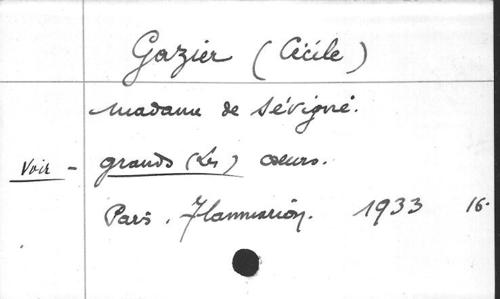 Gazier (Cécile)
Madame de Sévigné.
Voir - grands (Les) cœurs.
Paris, Flammarion. 1933 16·